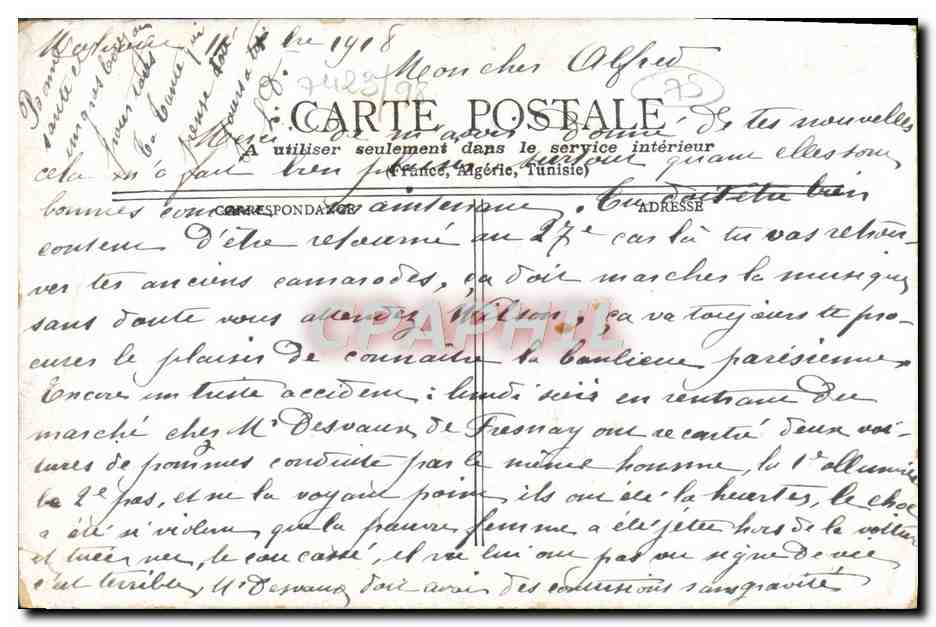 11 bre 1918
Mon cher Alfred
7423/98
75
CARTE POSTALE
Merci de m'avoir donné de tes nouvelles
A utiliser seulement dans le service intérieur
cela m'a fait bien plaisir surtout quand elles sont
(France, Algérie, Tunisie)
bonnes comme maintenant. Tu dois être bien
CORRESPONDANCE
ADRESSE
content d'être retourné au 27e car là tu vas retrou-
ver tes anciens camarades, ça doit marcher la musique
sans doute vous attendez Wilson; ça va toujours te pro-
curer le plaisir de connaître la banlieue parisienne
CPAPHIL
Encore un triste accident: lundi soir en rentrant du
marché cher Mr Desvaux de Fresnay ont recontré deux voi-
tures de pommes conduite par le même homme, la 1e allumée
la 2e pas, et ne la voyant point ils ont été la heurter, le choc
a été si violent que la pauvre femme a été jetée hors de la voiture
et tuée net, le cou cassé, il ne lui ont pas vu signe de vie
c'est terrible, Mr Desvaux doit avoir des contusions sans gravité
Bonne
santé et
pour tous
Ta tante qui
pense
toujours à toi